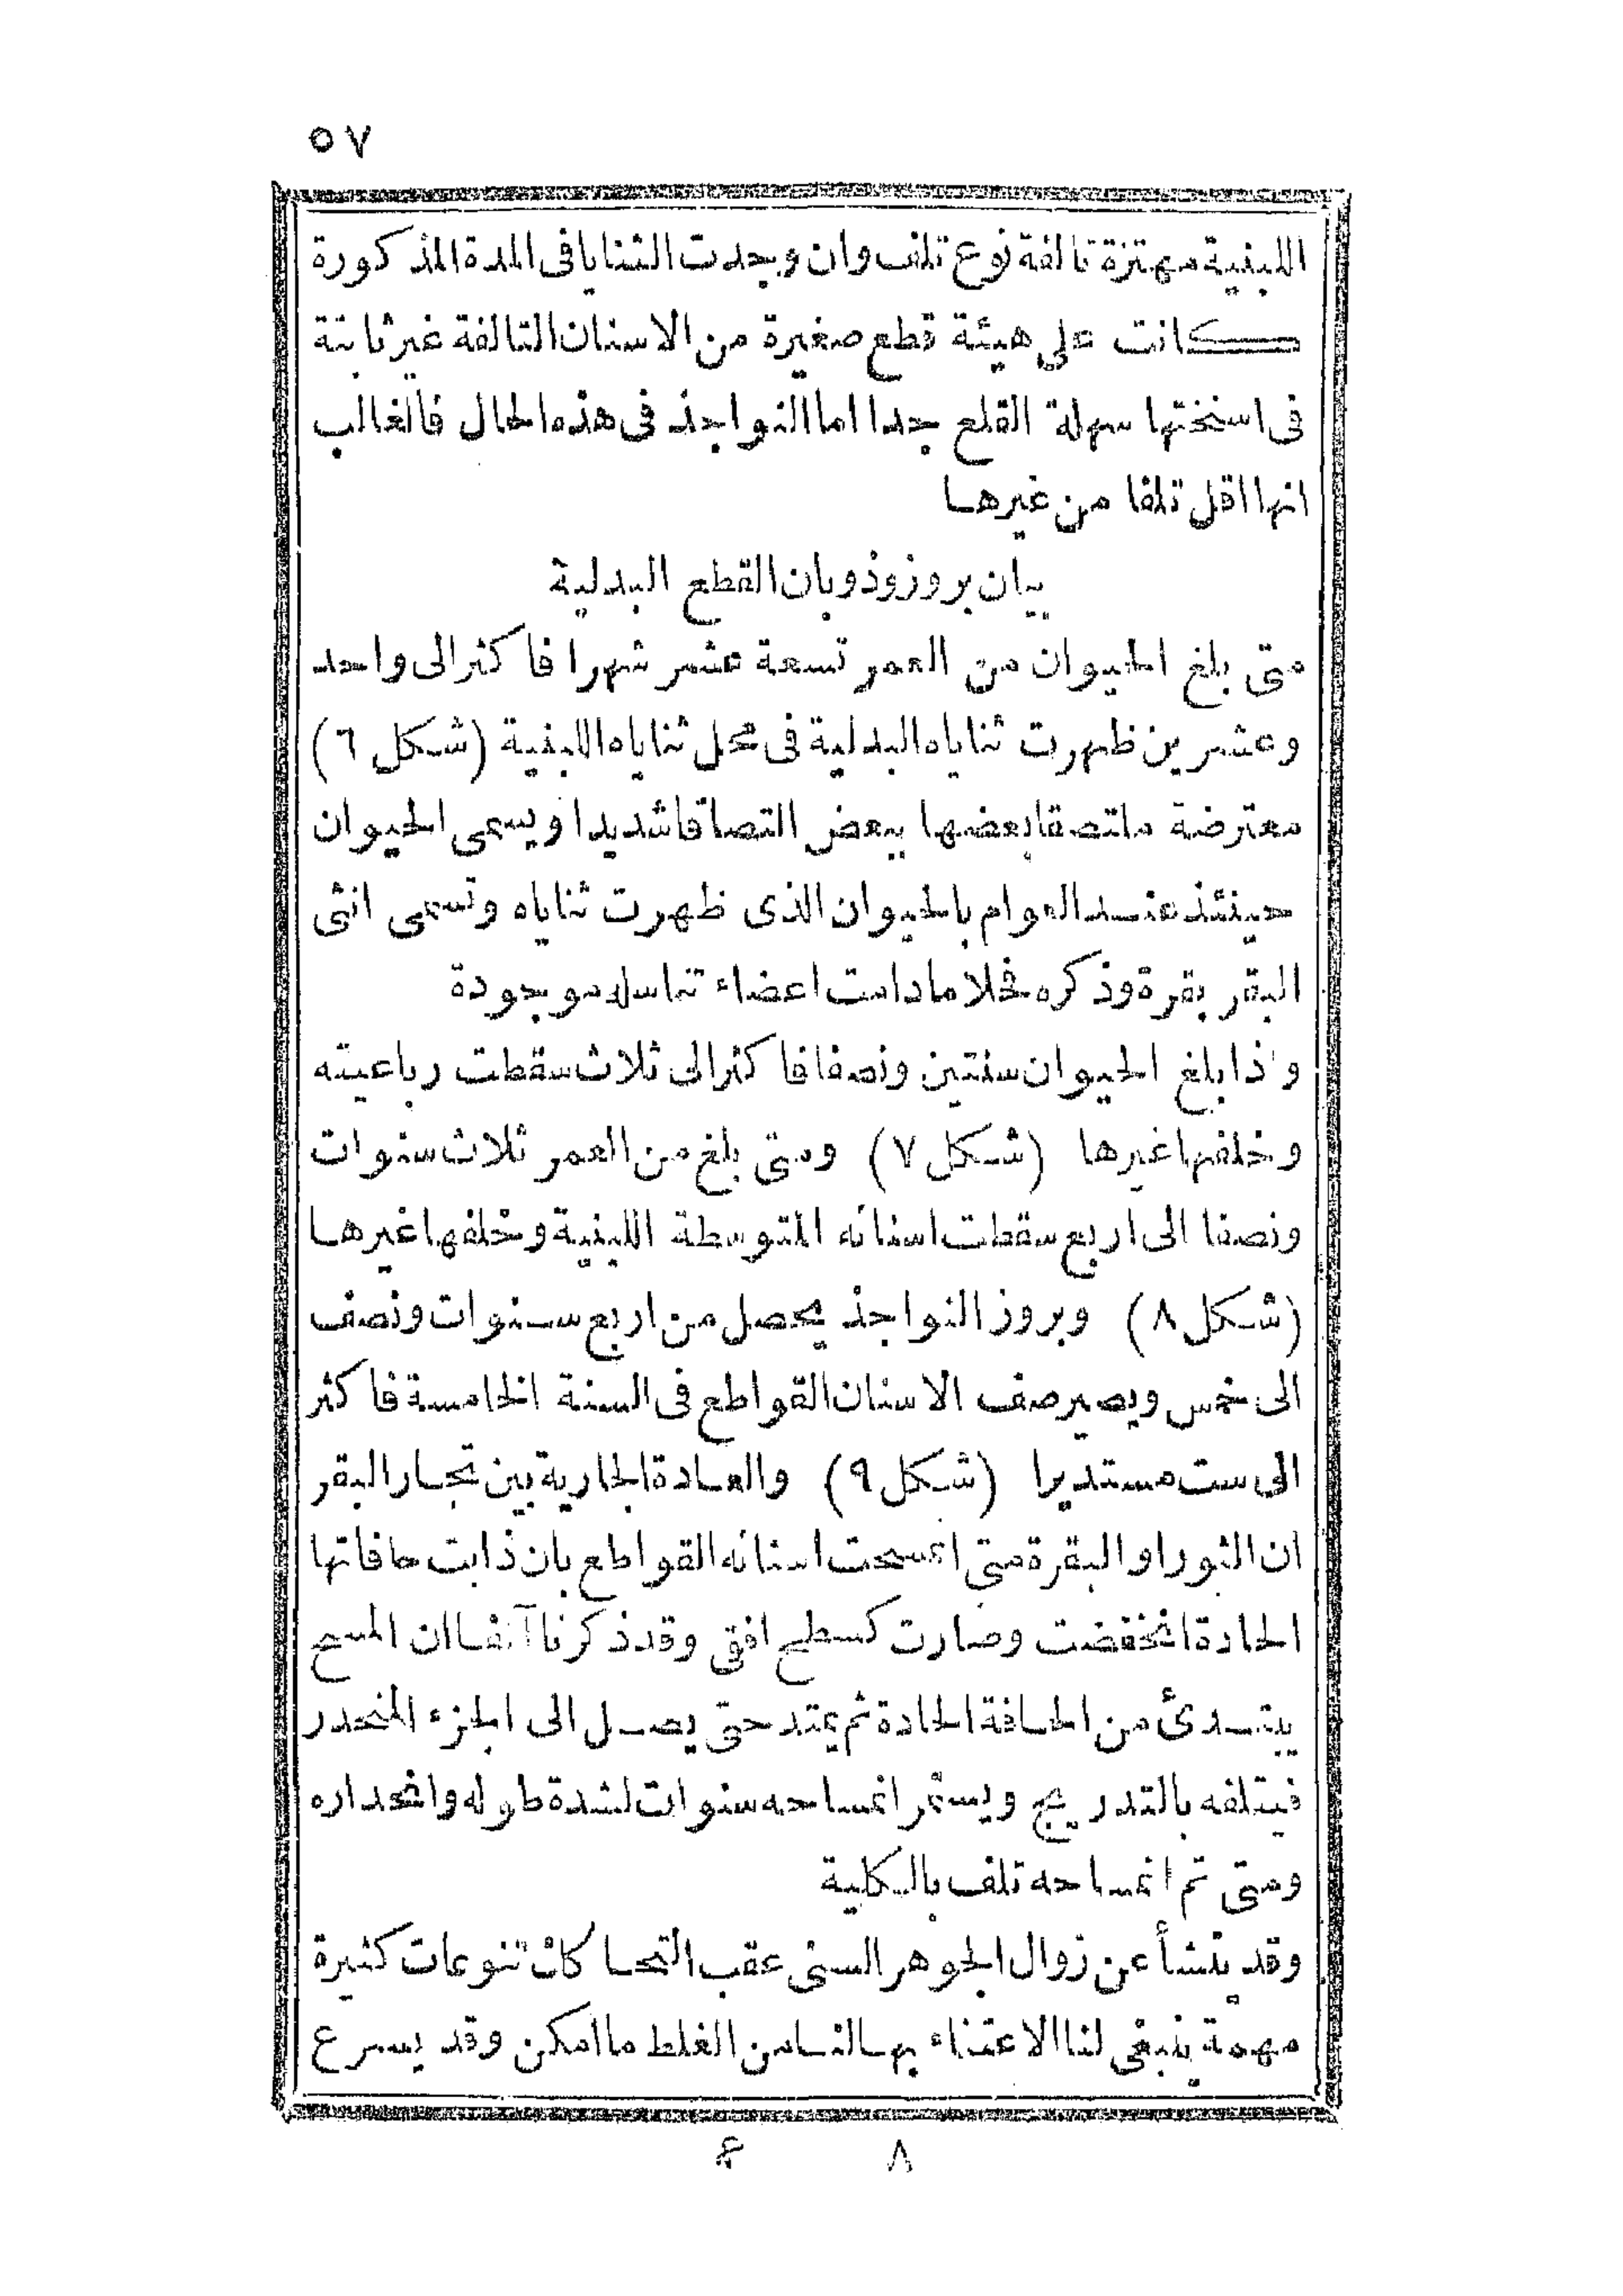 ٥٧
اللبنية مهتزة تالفة نوع تلف وان وجدت الثنايا فى المدة المذكورة
كانت على هيئة قطع صغيرة من الاسنان التالفة غير ثابتة
فى اسنختها سهلة القلع جدا اما النواجذ فى هذه الحال فالغالب
انها اقل تلفا من غيرها
بيان بروز وذوبان القطع البدلية
متى بلغ الحيوان من العمر تسعة عشر شهرا فاكثر الى واحد
وعشرين ظهرت ثناياه البدلية فى محل ثناياه اللبنية (شكل ٦)
معترضة ملتصقا بعضها ببعض التصاقا شديدا ويسمى الحيوان
حينئذ عند العوام بالحيوان الذى ظهرت ثناياه وتسمى انثى
البقر بقرة وذكره فحلا ما دامت اعضاء تناسله موجودة
واذا بلغ الحيوان سنتين ونصفا فاكثر الى ثلاث سقطت رباعيته
وخلفها غيرها (شكل ٧) ومتى بلغ من العمر ثلاث سنوات
ونصفا الى اربع سقطت اسنانه المتوسطة اللبنية وخلفها غيرها
(شكل ٨) وبروز النواجذ يحصل من اربع سنوات ونصف
الى خمس ويصير صف الاسنان القواطع فى السنة الخامسة فاكثر
الى ست مستديرا (شكل ٩) والعادة الجارية بين تجار البقر
ان الثور او البقرة متى انمسحت اسنانه القواطع بان ذابت حافاتها
الحادة انخفضت وصارت كسطح افقى وقد ذكرنا آنفا ان المسح
يبتدئ من الحافة الحادة ثم يمتد حتى يصل الى الجزء المنحدر
فيتلفه بالتدريج ويستمر انمساحه سنوات لشدة طوله وانحداره
ومتى تم انمساحه تلف بالكلية
وقد ينشأ عن زوال الجوهر السنى عقب التحاكات تنوعات كثيرة
مهمة ينبغى لنا الاعتناء بها لنامن الغلط ما امكن وقد يسرع
٨